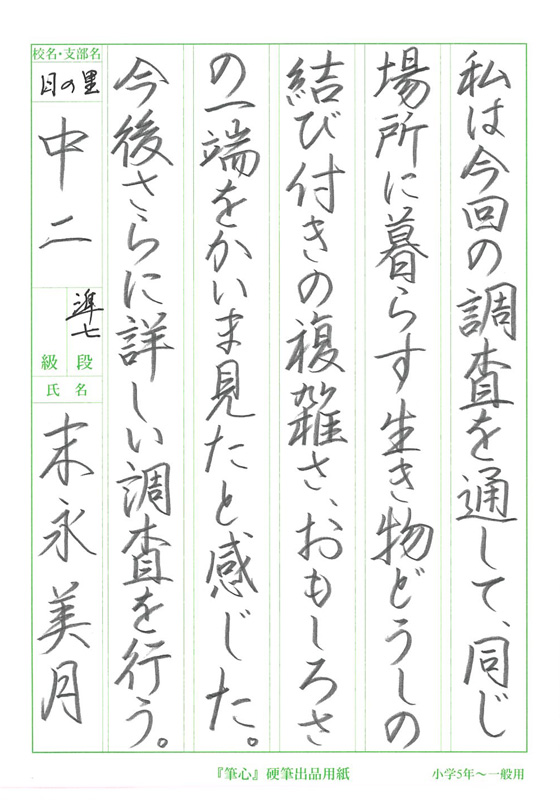 私は今回の調査を通して、同じ
場所に暮らす生き物どうしの
結び付きの複雑さ、おもしろさ
の一端をかいま見たと感じた。
今後さらに詳しい調査を行う。
校名・支部名
日の里
中二
準七
級 段
氏 名
末永美月
『筆心』硬筆出品用紙
小学5年～一般用